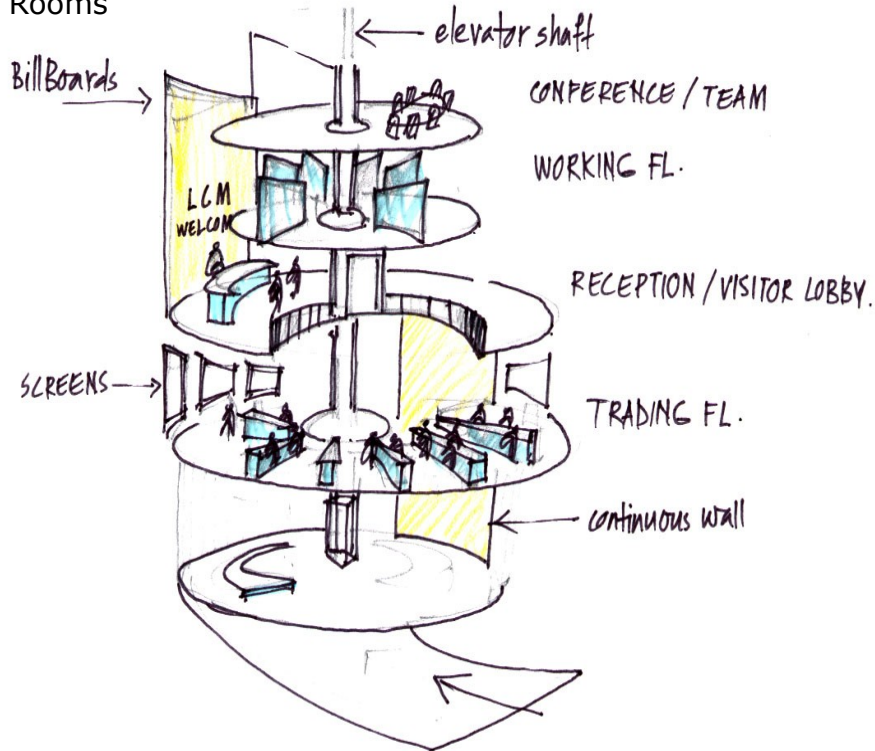 Rooms
elevator shaft
BillBoards
CONFERENCE / TEAM
WORKING FL.
LCM
WELCOM
RECEPTION / VISITOR LOBBY.
SCREENS
TRADING FL.
continuous wall